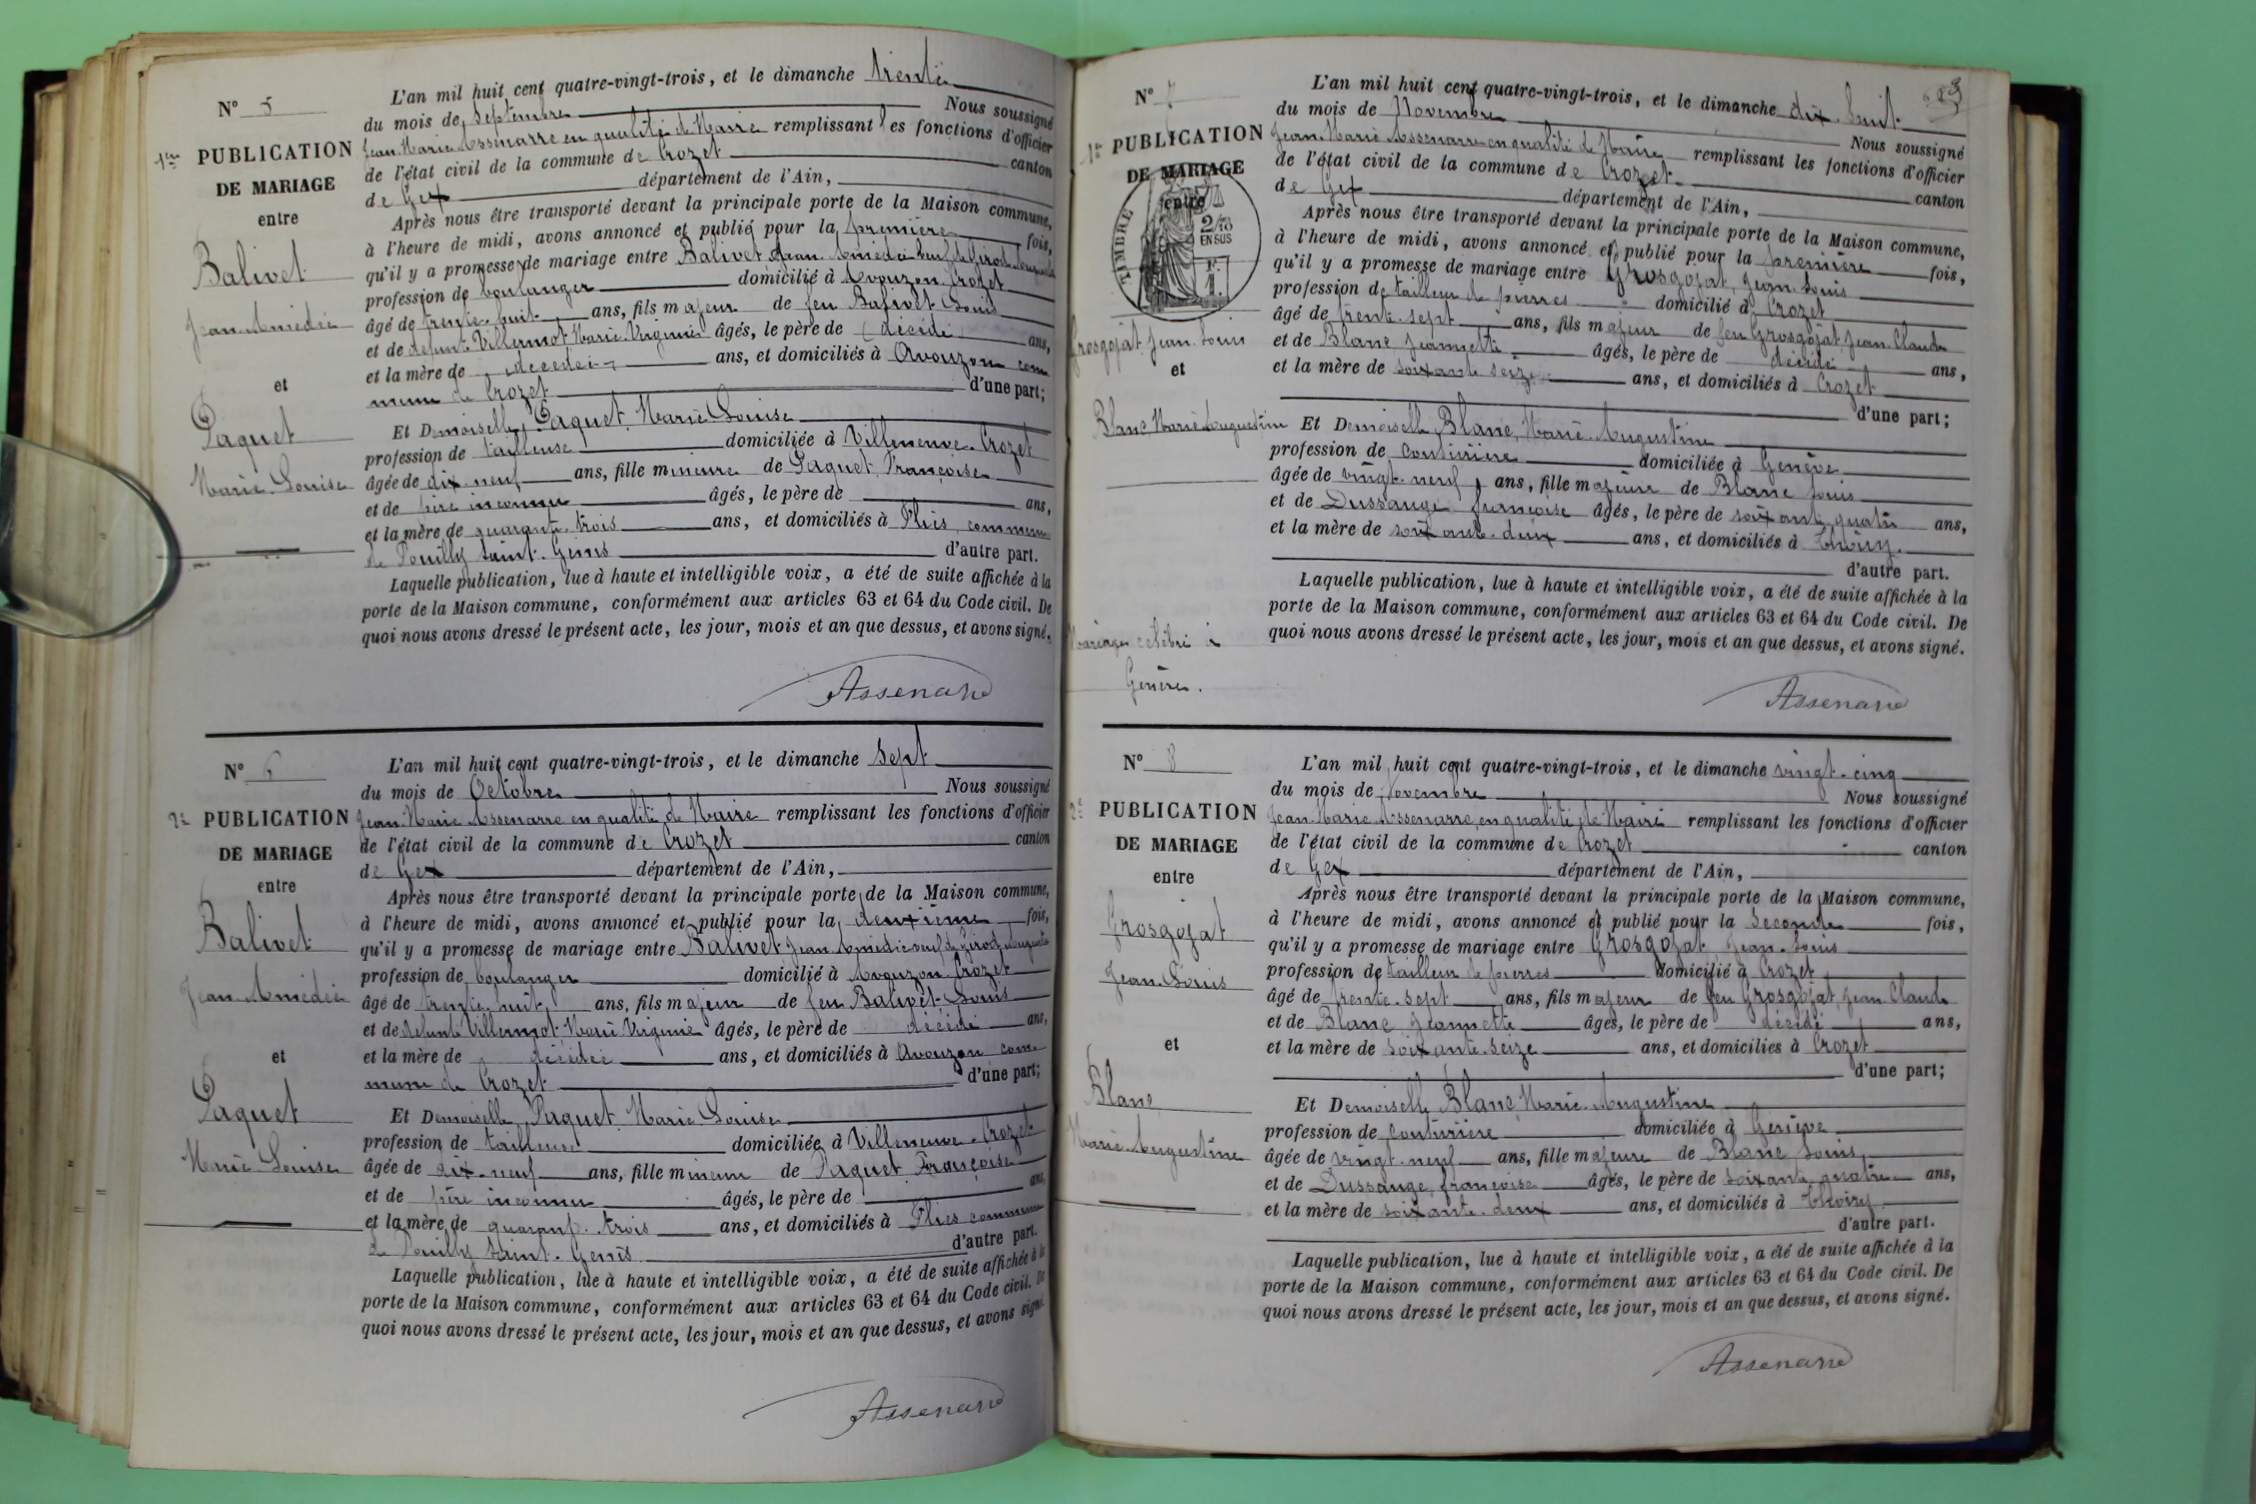 N° 5
1ère PUBLICATION
DE MARIAGE
entre
Balivet
Jean Amédée
et
Paquet
Marie Louise
L'an mil huit cent quatre-vingt-trois, et le dimanche trente
du mois de Septembre Nous soussigné
Jean Marie Assenarre en qualité de Maire remplissant les fonctions d'officier
de l'état civil de la commune de Crozet canton
de Gex département de l'Ain,
Après nous être transporté devant la principale porte de la Maison commune,
à l'heure de midi, avons annoncé et publié pour la première fois,
qu'il y a promesse de mariage entre Balivet Jean Amédée veuf de Girod
profession de boulanger domicilié à Avouzon Crozet
âgé de trente-huit ans, fils majeur de feu Balivet Louis
et de défunte Villermot Marie Virginie âgés, le père de (décédé) ans,
et la mère de décédée ans, et domiciliés à Avouzon com
mune de Crozet d'une part;
Et Demoiselle Paquet Marie Louise
profession de tailleuse domiciliée à Villeneuve-Crozet
âgée de dix-neuf ans, fille mineure de Paquet Françoise
et de père inconnu âgés, le père de ans,
et la mère de quarante-trois ans, et domiciliés à Flies commune
de Pouilly Saint-Genis d'autre part.
Laquelle publication, lue à haute et intelligible voix, a été de suite affichée à la
porte de la Maison commune, conformément aux articles 63 et 64 du Code civil. De
quoi nous avons dressé le présent acte, les jour, mois et an que dessus, et avons signé.
Assenarre
N° 6
2e PUBLICATION
DE MARIAGE
entre
Balivet
Jean Amédée
et
Paquet
Marie Louise
L'an mil huit cent quatre-vingt-trois, et le dimanche Sept
du mois de Octobre Nous soussigné
Jean Marie Assenarre en qualité de Maire remplissant les fonctions d'officier
de l'état civil de la commune de Crozet canton
de Gex département de l'Ain,
Après nous être transporté devant la principale porte de la Maison commune,
à l'heure de midi, avons annoncé et publié pour la deuxième fois,
qu'il y a promesse de mariage entre Balivet Jean Amédée veuf de Girod
profession de boulanger domicilié à Avouzon Crozet
âgé de trente-huit ans, fils majeur de feu Balivet Louis
et de défunte Villermot Marie Virginie âgés, le père de décédé ans,
et la mère de décédée ans, et domiciliés à Avouzon com
mune de Crozet d'une part;
Et Demoiselle Paquet Marie Louise
profession de tailleuse domiciliée à Villeneuve-Crozet
âgée de dix-neuf ans, fille mineure de Paquet Françoise
et de père inconnu âgés, le père de ans,
et la mère de quarante-trois ans, et domiciliés à Flies commune
de Pouilly Saint-Genis d'autre part.
Laquelle publication, lue à haute et intelligible voix, a été de suite affichée à la
porte de la Maison commune, conformément aux articles 63 et 64 du Code civil. De
quoi nous avons dressé le présent acte, les jour, mois et an que dessus, et avons signé.
Assenarre
N° 7
1ère PUBLICATION
DE MARIAGE
entre
TIMBRE
2/10
EN SUS
F.
1.
Grosgojat Jean Louis
et
Blanc Marie Augustine
Mariage célébré à
Genève.
L'an mil huit cent quatre-vingt-trois, et le dimanche dix-huit
du mois de Novembre Nous soussigné
Jean Marie Assenarre en qualité de Maire remplissant les fonctions d'officier
de l'état civil de la commune de Crozet canton
de Gex département de l'Ain,
Après nous être transporté devant la principale porte de la Maison commune,
à l'heure de midi, avons annoncé et publié pour la première fois,
qu'il y a promesse de mariage entre Grosgojat, Jean Louis
profession de tailleur de pierres domicilié à Crozet
âgé de trente-sept ans, fils majeur de feu Grosgojat Jean Claude
et de Blanc Jeannette âgés, le père de décédé ans,
et la mère de soixante seize ans, et domiciliés à Crozet
d'une part;
Et Demoiselle Blanc, Marie Augustine
profession de couturière domiciliée à Genève
âgée de vingt-neuf ans, fille majeure de Blanc Louis
et de Dussauge françoise âgés, le père de soixante quatre ans,
et la mère de soixante-deux ans, et domiciliés à Thoiry.
d'autre part.
Laquelle publication, lue à haute et intelligible voix, a été de suite affichée à la
porte de la Maison commune, conformément aux articles 63 et 64 du Code civil. De
quoi nous avons dressé le présent acte, les jour, mois et an que dessus, et avons signé.
Assenarre
N° 8
2e PUBLICATION
DE MARIAGE
entre
Grosgojat
Jean Louis
et
Blanc
Marie Augustine
L'an mil huit cent quatre-vingt-trois, et le dimanche vingt-cinq
du mois de Novembre Nous soussigné
Jean Marie Assenarre, en qualité de Maire remplissant les fonctions d'officier
de l'état civil de la commune de Crozet canton
de Gex département de l'Ain,
Après nous être transporté devant la principale porte de la Maison commune,
à l'heure de midi, avons annoncé et publié pour la Seconde fois,
qu'il y a promesse de mariage entre Grosgojat Jean Louis
profession de tailleur de pierres domicilié à Crozet
âgé de trente-sept ans, fils majeur de feu Grosgojat Jean Claude
et de Blanc Jeannette âgés, le père de décédé ans,
et la mère de soixante-seize ans, et domiciliés à Crozet
d'une part;
Et Demoiselle Blanc, Marie Augustine
profession de couturière domiciliée à Genève
âgée de vingt-neuf ans, fille majeure de Blanc Louis,
et de Dussauge françoise âgés, le père de soixante quatre ans,
et la mère de soixante-deux ans, et domiciliés à Thoiry
d'autre part.
Laquelle publication, lue à haute et intelligible voix, a été de suite affichée à la
porte de la Maison commune, conformément aux articles 63 et 64 du Code civil. De
quoi nous avons dressé le présent acte, les jour, mois et an que dessus, et avons signé.
Assenarre